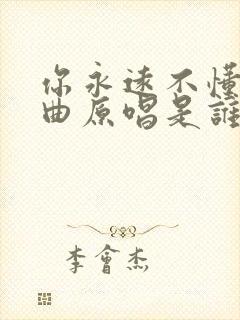 你永遠不懂
曲原唱是誰
李會杰